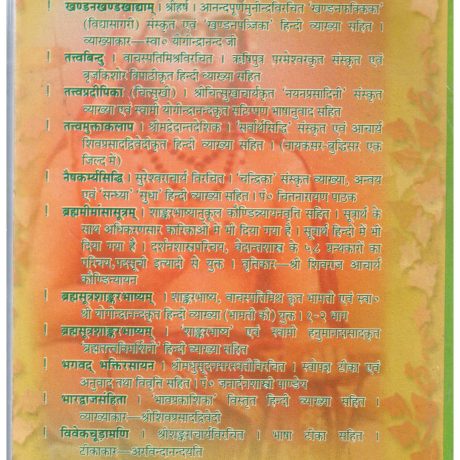 खण्डनखण्डखाद्यम् । श्रीहर्ष । आनन्दपूर्णमुनीन्द्रविरचित 'खण्डनफक्किका'
(विद्यासागरी) संस्कृत एवं 'खण्डनपञ्जिका' हिन्दी व्याख्या सहित ।
व्याख्याकार—स्वा० योगीन्द्रानन्द जी
तत्त्वबिन्दु । वाचस्पतिमिश्रविरचित । ऋषिपुत्र परमेश्वरकृत संस्कृत एवं
बृजकिशोर त्रिपाठीकृत हिन्दी व्याख्या सहित
तत्त्वप्रदीपिका (चित्सुखी) । श्रीचित्सुखाचार्यकृत 'नयनप्रसादिनी' संस्कृत
व्याख्या एवं स्वामी योगीन्द्रानन्दकृत सटिप्पण भाषानुवाद सहित
तत्त्वमुक्ताकलाप । श्रीमद्वेदान्तदेशिक । 'सर्वार्थसिद्धि' संस्कृत एवं आचार्य
शिवप्रसादद्विवेदीकृत हिन्दी व्याख्या सहित । (नायकसर-बुद्धिसर एक
जिल्द में)
नैष्कर्म्यसिद्धि । सुरेश्वराचार्य विरचित । 'चन्द्रिका' संस्कृत व्याख्या, अन्वय
एवं 'सन्ध्या' 'सुधा' हिन्दी व्याख्या सहित । पं० चितनारायण पाठक
ब्रह्ममीमांसासूत्रम् । शाङ्करभाष्यानुकूल कौण्डिन्न्यायनवृत्ति सहित । सूत्रार्थ के
साथ अधिकरणसार कारिकाओं में भी दिया गया है । सूत्रार्थ हिन्दी में भी
दिया गया है । दर्शनशास्त्रपरिचय, वेदान्तशास्त्र के ५८ ग्रन्थकारों का
परिचय, पदसूची इत्यादी से युक्त । वृत्तिकार—श्री शिवराज आचार्य
कौण्डिन्न्यायन
ब्रह्मसूत्रशाङ्करभाष्यम् । शाङ्करभाष्य, वाचस्पतिमिश्र कृत भामती एवं स्वा०
श्री योगीन्द्रानन्दकृत हिन्दी व्याख्या (भामती की) युक्त । १-२ भाग
ब्रह्मसूत्रशाङ्करभाष्यम् । 'शाङ्करभाष्य' एवं स्वामी हनुमानदासकृत
'ब्रह्मतत्त्वविमर्शिनी' हिन्दी व्याख्या सहित
भगवद् भक्तिरसायन । श्रीमधुसूदनसरस्वतीविरचित । स्वोपज्ञ टीका एवं
अनुवाद तथा विवृत्ति सहित । पं० जनार्दनशास्त्री पाण्डेय
भारद्वाजसंहिता । 'भावप्रकाशिका' विस्तृत हिन्दी व्याख्या सहित ।
व्याख्याकार—श्रीशिवप्रसादद्विवेदी
विवेकचूडामणि । श्रीशङ्कराचार्यविरचित । भाषा टीका सहित ।
टीकाकार—अरविन्दानन्दयति